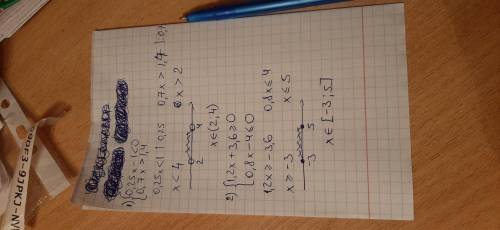 1) { 0,25x - 1 < 0
0,7x > 1,4
0,25x < 1 | : 0,25    0,7x > 1,4 | : 0,7
x < 4    x > 2
2    4
x ∈ (2,4)
2) { 1,2x + 3,6 ≥ 0
0,8x - 4 ≤ 0
1,2x ≥ -3,6    0,8x ≤ 4
x ≥ -3    x ≤ 5
-3    5
x ∈ [-3;5]